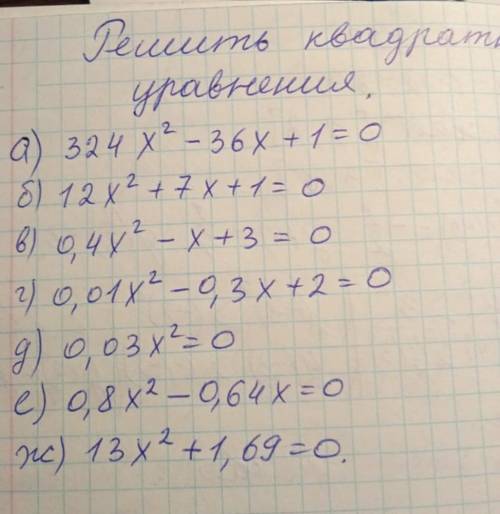 Решить квадратн
уравнения.
а) 324 x² - 36x + 1 = 0
б) 12x² + 7x + 1 = 0
в) 0,4x² - x + 3 = 0
г) 0,01x² - 0,3x + 2 = 0
д) 0,03x² = 0
е) 0,8x² - 0,64x = 0
ж) 13x² + 1,69 = 0.